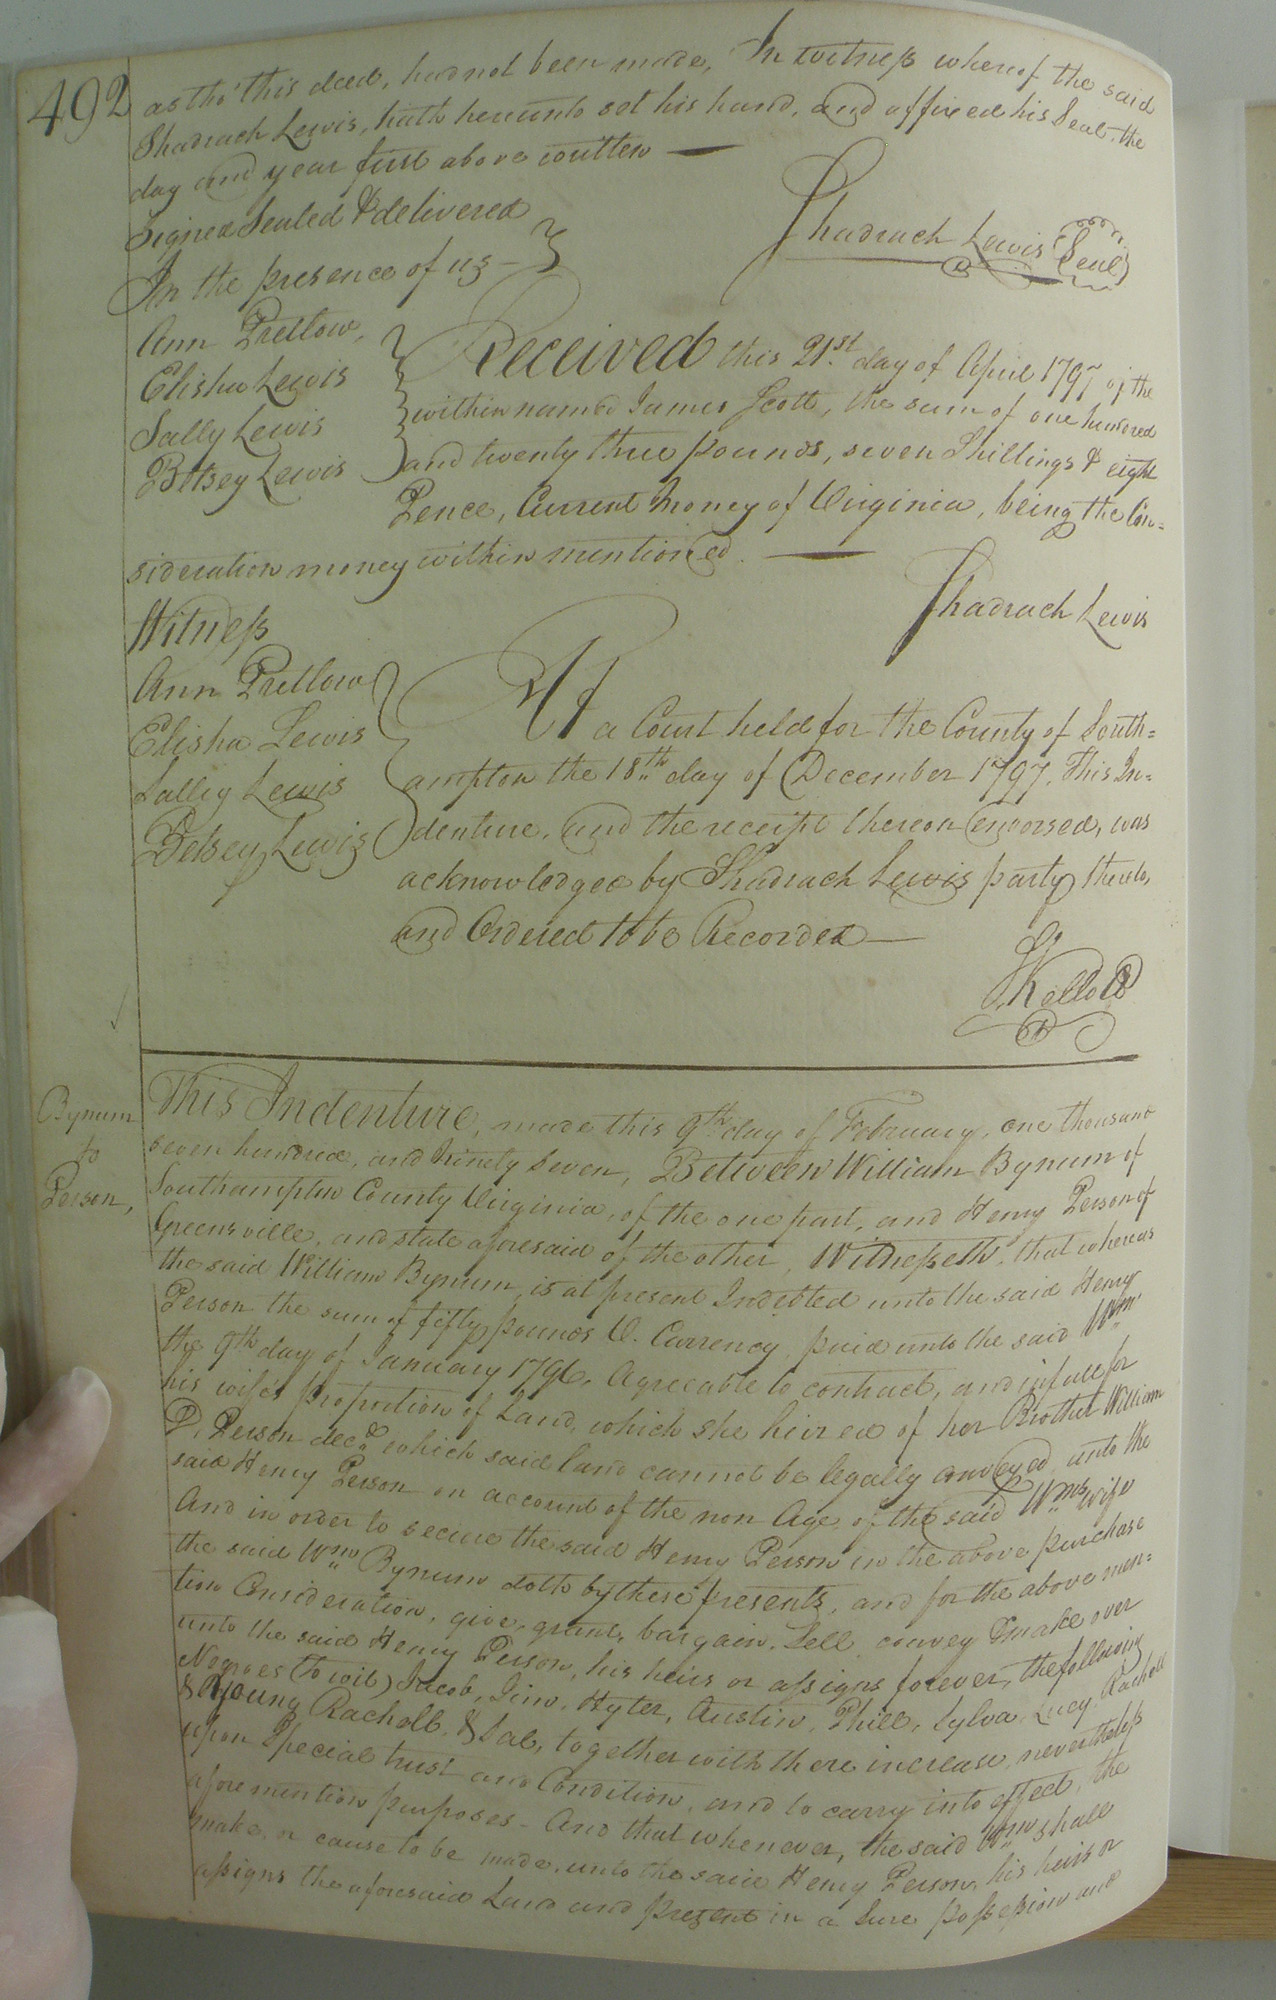 492
as tho' this deed, had not been made, In witness whereof the said
Shadrach Lewis, hath hereunto set his hand, and affixed his Seal, the
day and year first above written
Signed Sealed & delivered
In the presence of us
Shadrach Lewis Seal
Ann Pretlow,
Elisha Lewis
Sally Lewis
Betsey Lewis
Received this 21st day of April 1797 of the
within named James Scott, the sum of one hundred
and twenty three pounds, seven Shillings & eight
Pence, Current Money of Virginia, being the Con=
sideration money within mentioned.
Shadrach Lewis
Witness
Ann Pretlow
Elisha Lewis
Salley Lewis
Betsey Lewis
At a Court held for the County of South=
ampton the 18th day of December 1797. This In=
denture, and the receipt thereon endorsed, was
acknowledged by Shadrach Lewis party thereto,
and Ordered to be Recorded
Bynum
to
Person,
This Indenture, made this 9th day of February, one thousand
seven hundred, and Ninety Seven, Between William Bynum of
Southampton County Virginia, of the one part, and Henry Person of
Greensville, and state aforesaid of the other, Witnesseth, that whereas
the said William Bynum, is at present Indebted unto the said Henry
Person the sum of fifty pounds V. Currency, paid unto the said Wm.
the 9th day of January 1796, Agreeable to contract, and in full for
his wife's proportion of Land, which she heired of her Brother William
P. Person decd. which said land cannot be legally conveyed unto the
said Henry Person on account of the non Age, of the said Wms. wife
And in order to secure the said Henry Person in the above purchase
the said Wm Bynum doth by these presents, and for the above men=
tion Consideration, give, grant, bargain, Sell, convey & make over
unto the said Henry Person, his heirs or assigns forever, the following
Negroes (to wit) Jacob, Jim, Hyter, Austin, Phill, Sylva, Lucy, Rachell
& Young Rachell, & Sal, together with there increase, nevertheless
upon Special trust and Condition, and to carry into effect, the
aforemention purposes - And that whenever, the said Wm shall
make, or cause to be made, unto the said Henry Person, his heirs or
assigns the aforesaid Land and present in a Sure possession and